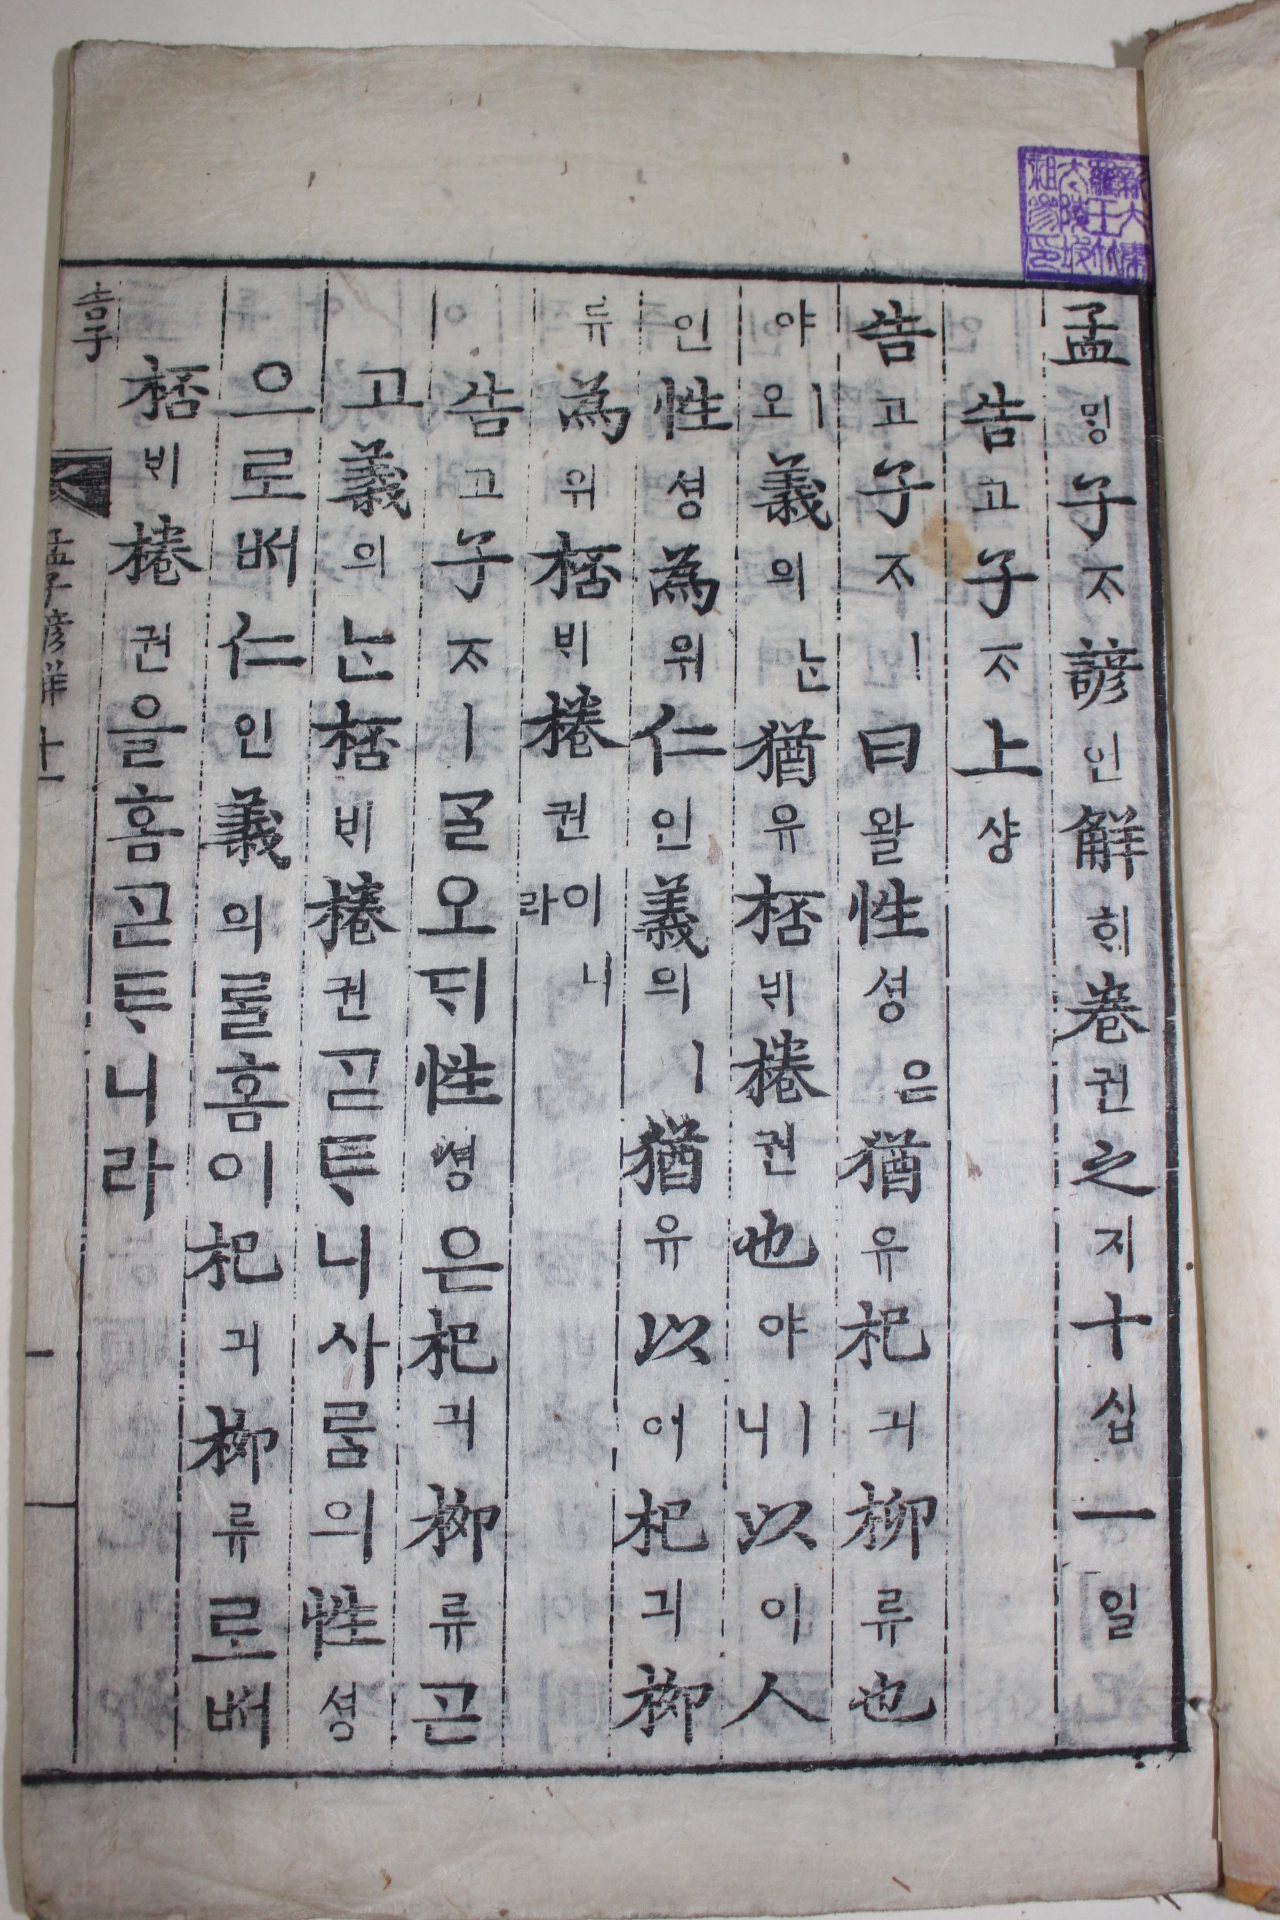 孟ᄆᆡᆼ子ᄌᆞ諺언解ᄒᆡ卷권之지十십一일
告고子ᄌᆞ上샹
告고子ᄌᆞㅣ曰왈性셩은猶유杞긔柳류也
야ㅣ오義의ᄂᆞᆫ猶유桮ᄇᆡ棬권也야ㅣ니以이人
인性셩為위仁인義의ㅣ猶유以이杞긔柳
류為위桮ᄇᆡ棬권이니라
告고子ᄌᆞㅣᄀᆞᆯ오ᄃᆡ性셩은杞긔柳류ᄀᆞᆮ
고義의ᄂᆞᆫ桮ᄇᆡ棬권ᄀᆞᆮᄐᆞ니사ᄅᆞᆷ의性셩
으로ᄡᅥ仁인義의ᄅᆞᆯ홈이杞긔柳류로ᄡᅥ
桮ᄇᆡ棬권을홈ᄀᆞᆮᄐᆞ니라
告子
孟子諺解 十一
一